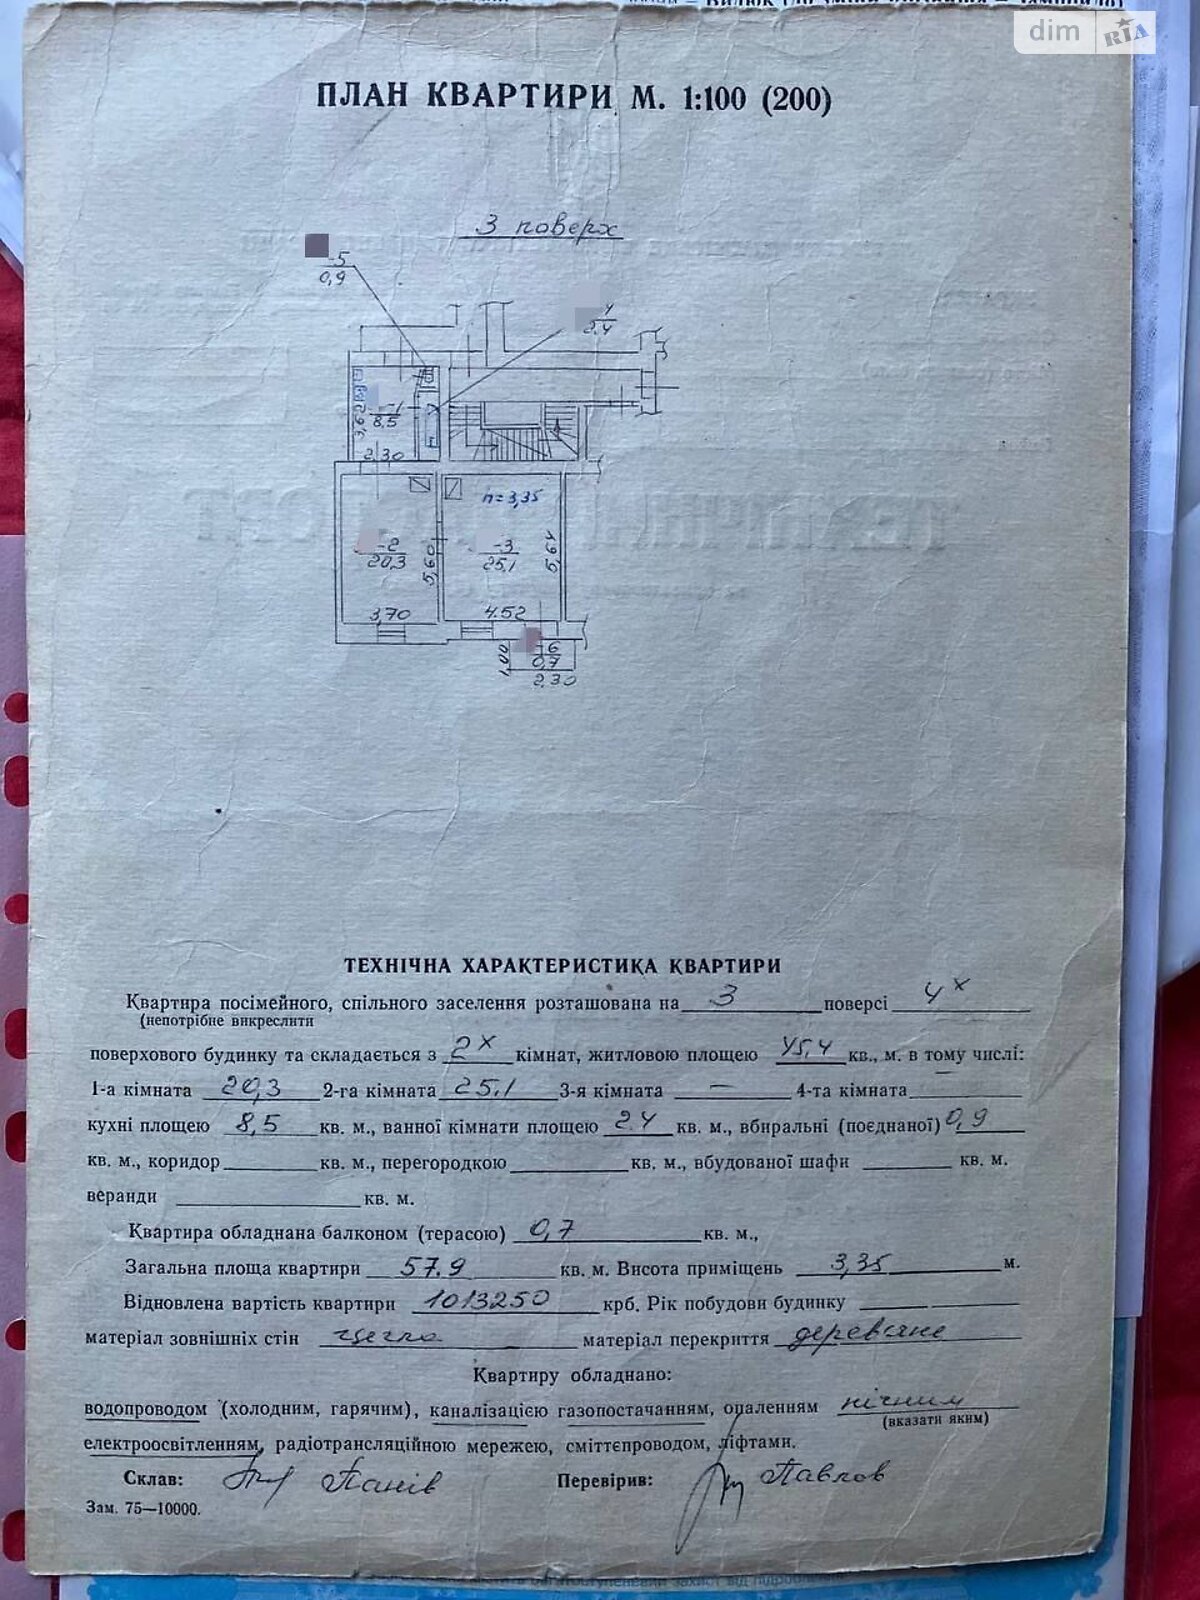 dim RIA
ПЛАН КВАРТИРИ М. 1:100 (200)
3 поверх
-5
0,9
4
2.4
-1
8,5
3,62
2.30
h=3,35
-2
20,3
5,60
-3
25,1
5,64
3,70
4.52
-6
0,7
1,00
2,30
ТЕХНІЧНА ХАРАКТЕРИСТИКА КВАРТИРИ
Квартира посімейного, спільного заселення розташована на 3 поверсі 4х
(непотрібне викреслити
поверхового будинку та складається з 2х кімнат, житловою площею 45,4 кв., м. в тому числі:
1-а кімната 20,3 2-га кімната 25.1 3-я кімната — 4-та кімната —
кухні площею 8,5 кв. м., ванної кімнати площею 2.4 кв. м., вбиральні (поєднаної) 0,9
кв. м., коридор кв. м., перегородкою кв. м., вбудованої шафи кв. м.
веранди кв. м.
Квартира обладнана балконом (терасою) 0,7 кв. м.,
Загальна площа квартири 57.9 кв. м. Висота приміщень 3,35 м.
Відновлена вартість квартири 1013250 крб. Рік побудови будинку
матеріал зовнішніх стін цегла матеріал перекриття деревяне
Квартиру обладнано:
водопроводом (холодним, гарячим), каналізацією газопостачанням, опаленням пічним
(вказати яким)
електроосвітленням, радіотрансляційною мережею, сміттєпроводом, ліфтами.
Склав: Панів Перевірив: Павлов
Зам. 75—10000.